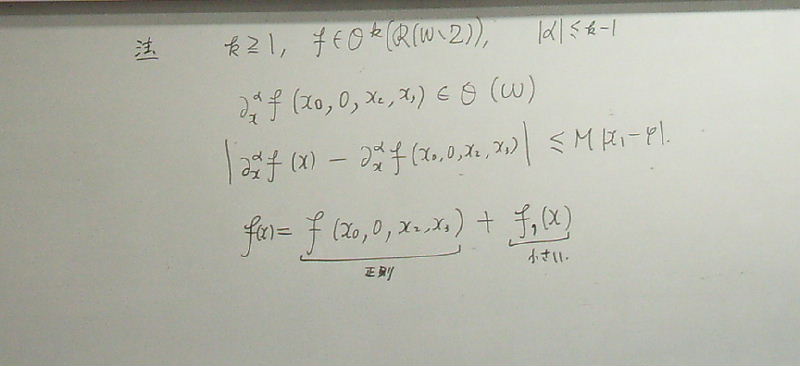 注 k ≧ 1, f ∈ 𝒪^k(ℛ(W∖Z)), |α| ≤ k-1
∂_x^α f(x₀, 0, x₂, x₃) ∈ 𝒪(W)
|∂_x^α f(x) - ∂_x^α f(x₀, 0, x₂, x₃)| ≤ M|x₁-φ|.
f(x) = f(x₀, 0, x₂, x₃) + f₁(x)
正則 小さい.